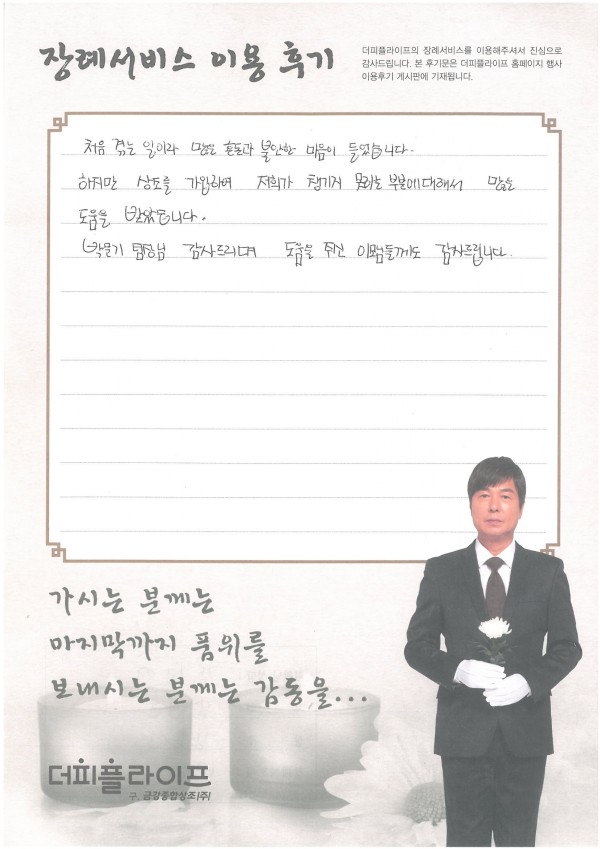 장례서비스 이용 후기
더피플라이프의 장례서비스를 이용해주셔서 진심으로
감사드립니다. 본 후기문은 더피플라이프 홈페이지 행사
이용후기 게시판에 기재됩니다.
처음 겪는 일이라 많은 혼돈과 불안한 마음이 들었습니다.
하지만 상조를 가입하여 저희가 챙기지 못하는 부분에 대해서 많은
도움을 받았습니다.
팀장님 감사드리며 도움을 주신 감사드립니다.
가시는 분께는
마지막까지 품위를
보내시는 분께는 감동을...
더피플라이프
구. 금강종합상조(주)